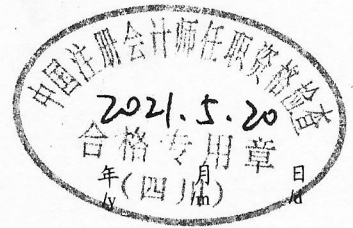 中国注册会计师任职资格检查
2021.5.20
合格专用章
年 月 日
(四川)
/y /m /d